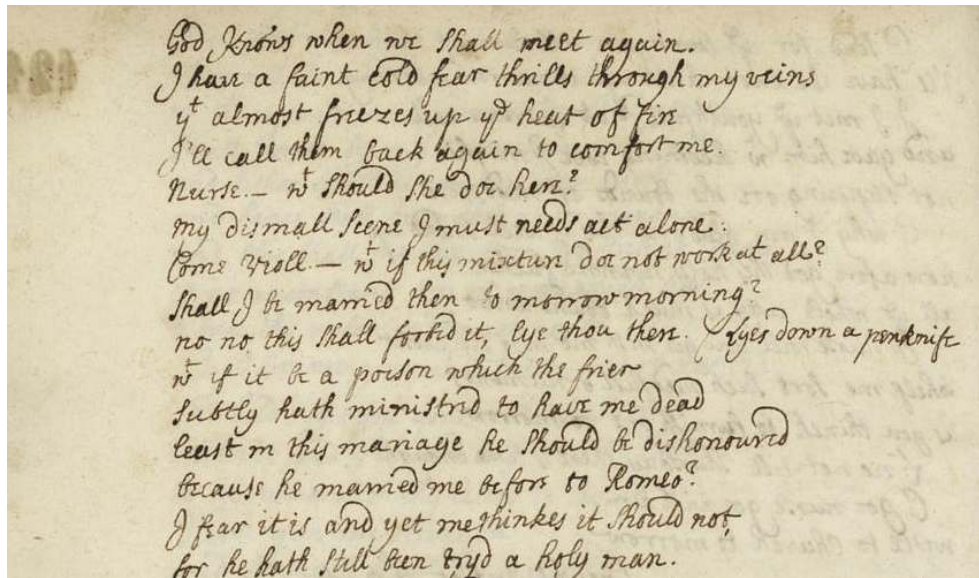 God Knows when we shall meet again.
I haue a faint cold fear thrills through my veins
yt almost freezes up ye heat of fire
I'll call them back again to comfort me.
Nurse – wt should she doe here?
my dismall scene I must needs act alone.
Come Violl – wt if this mixture doe not work at all?
shall I be married then to morrow morning?
no no this shall forbid it, lye thou there. / Lyes down a penknife
wt if it be a poison which the frier
subtly hath ministred to haue me dead
least in this mariage he should be dishonoured
because he married me before to Romeo?
I fear it is and yet methinkes it should not,
for he hath still been tryd a holy man.